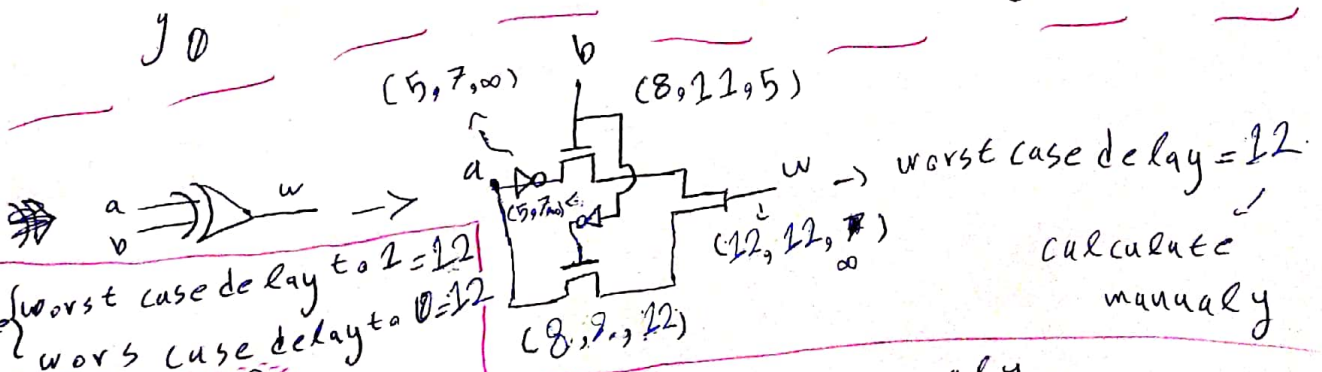 y 0
b
(5,7,∞)
(8,11,5)
a
w
→ worst case delay = 12
a
w
→
(5,7,∞)
b
(12,12,∞)
calculate
manualy
worst case delay to 1 = 12
wors case delay to 0 = 12
(8,9,12)